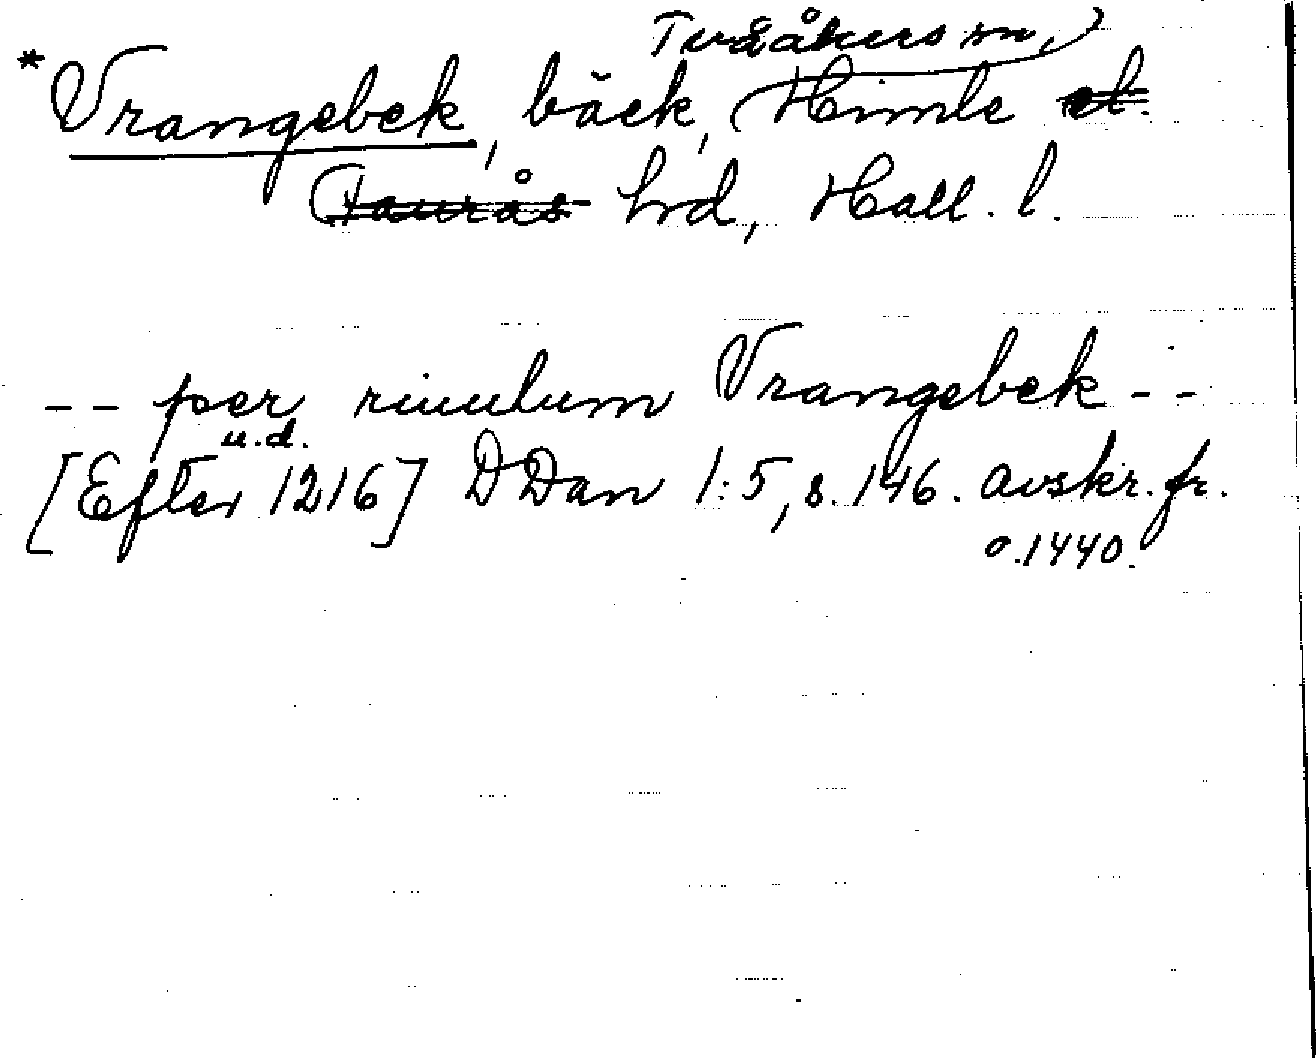 Tvååkers sn,
*Vrangebek, bäck, Himle el.
Faurås hrd, Hall. l.
-- per riuulum Vrangebek --
u.d.
[Efter 1216] DDan 1:5, s. 146. avskr. fr.
o. 1440.